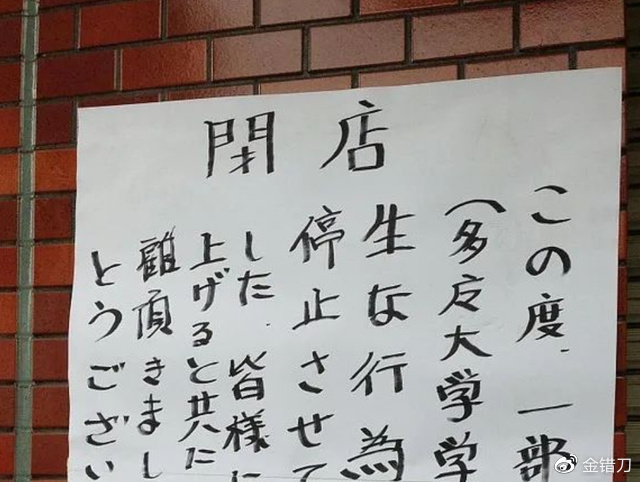 閉店
この度、一部
（多々大学学
生な行為
停止させて
した、皆様に
上げると共た
顧頂きまし
とうござい
金错刀